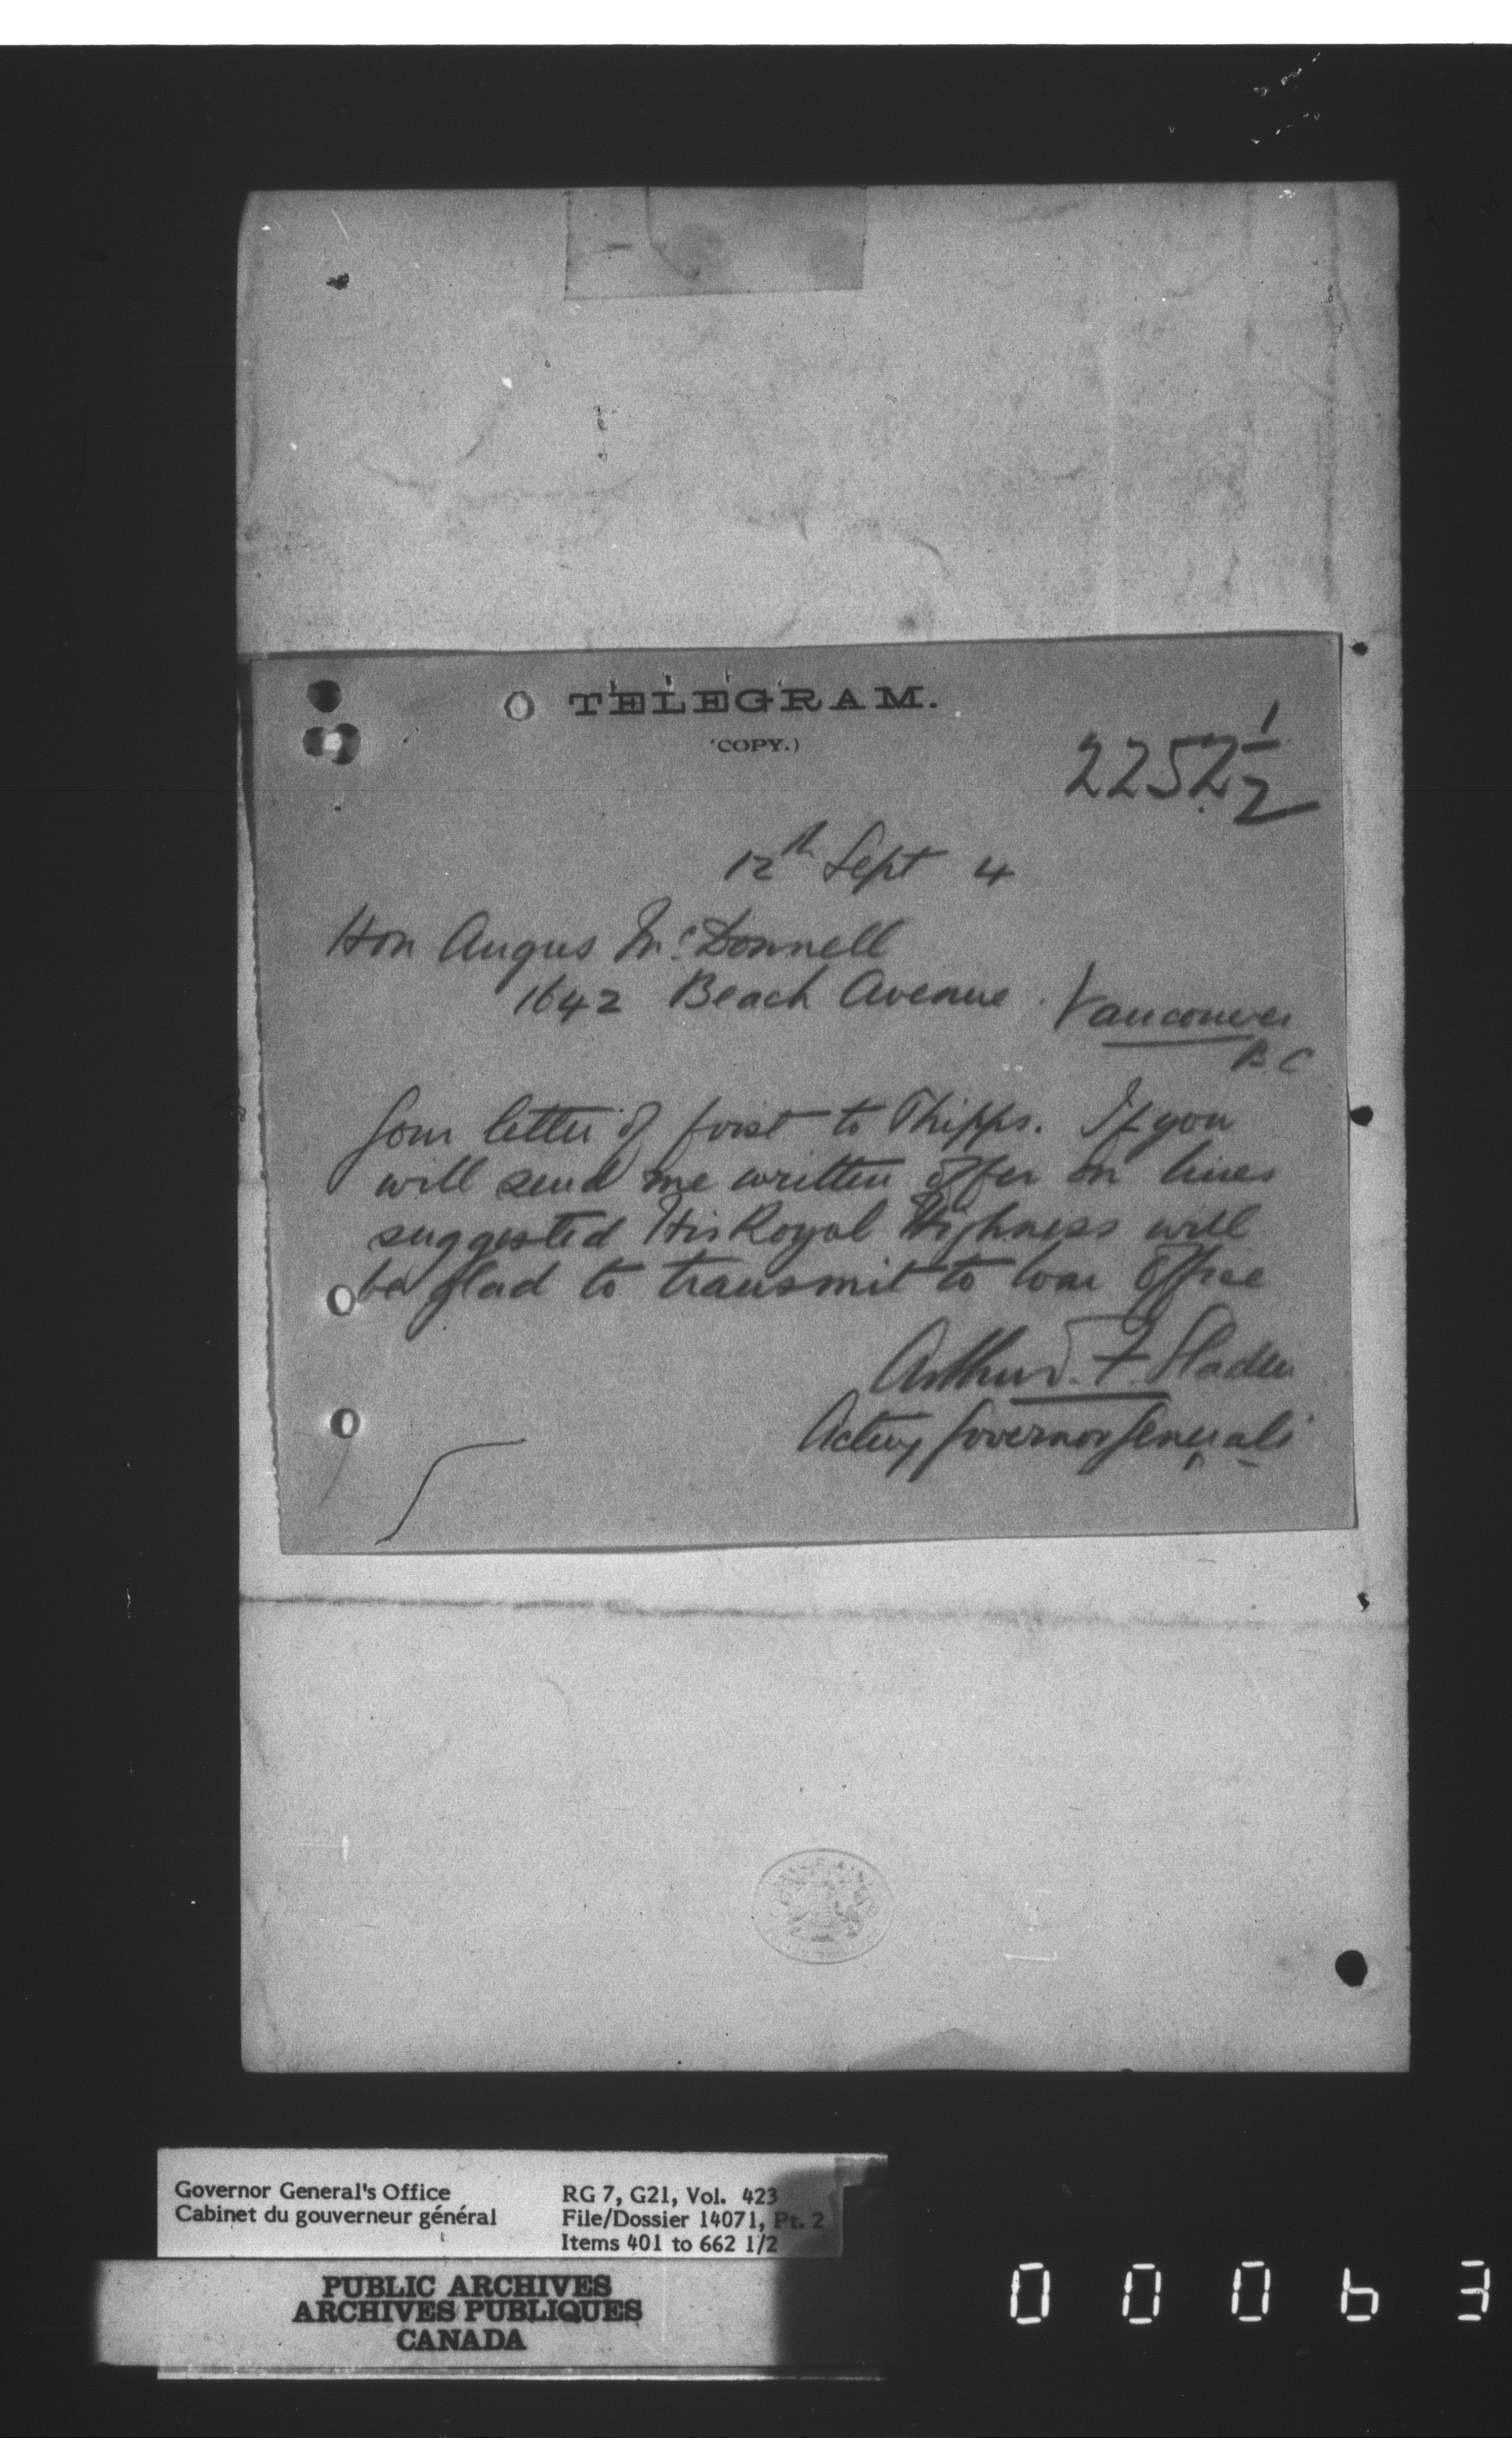 TELEGRAM.
(COPY.)
2252 1/2
12th Sept 4
Hon Angus McDonnell
1642 Beach Avenue. Vancouver
B.C
Your letter of first to Phipps. If you
will send me written offer on lines
suggested His Royal Highness will
be glad to transmit to War Office
Arthur. F. Sladen
Acting Governor Generals
Governor General's Office
Cabinet du gouverneur général
RG 7, G21, Vol. 423
File/Dossier 14071, Pt. 2
Items 401 to 662 1/2
PUBLIC ARCHIVES
ARCHIVES PUBLIQUES
CANADA
00063